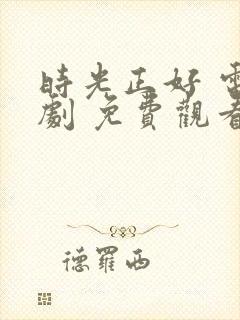 時光正好 電
劇 免費觀看
德羅西